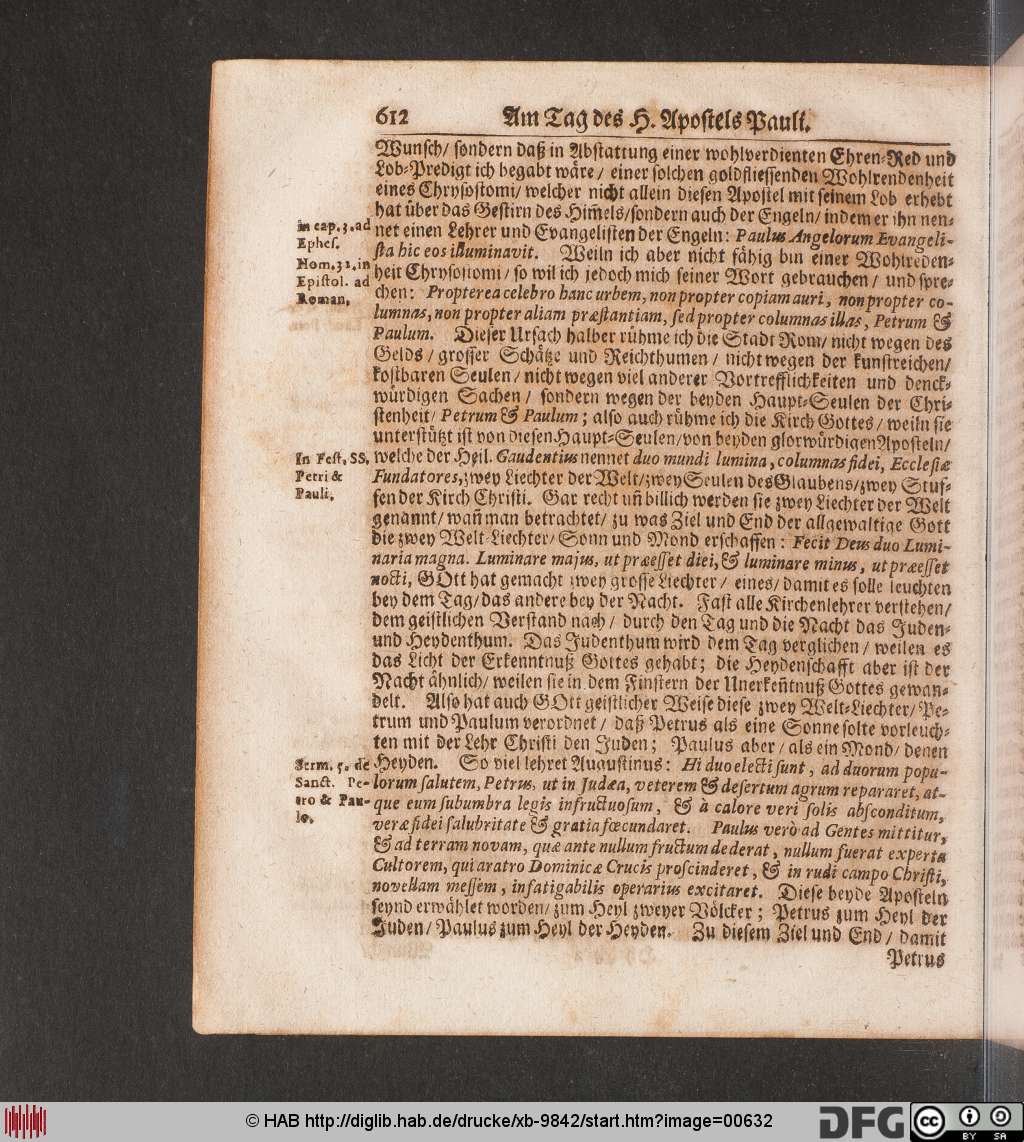 612 Am Tag des H. Apostels Pauli.
Wunsch/ sondern daß in Abstattung einer wohlverdienten Ehren-Red und
Lob-Predigt ich begabt wäre/ einer solchen goldfliessenden Wohlrendenheit
eines Chrysostomi/ welcher nicht allein diesen Apostel mit seinem Lob erhebt
hat über das Gestirn des Him̃els/ sondern auch der Engeln/ indem er ihn nen-
in cap. 3. ad
Ephes.
net einen Lehrer und Evangelisten der Engeln: Paulus Angelorum Evangeli-
sta hic eos illuminavit. Weiln ich aber nicht fähig bin einer Wohlreden-
Hom. 32. in
Epistol. ad
Roman.
heit Chrysostomi/ so wil ich jedoch mich seiner Wort gebrauchen/ und spre-
chen: Propterea celebro hanc urbem, non propter copiam auri, non propter co-
lumnas, non propter aliam præstantiam, sed propter columnas illas, Petrum &
Paulum. Dieser Ursach halber rühme ich die Stadt Rom/ nicht wegen des
Gelds/ grosser Schätze und Reichthumen/ nicht wegen der kunstreichen/
kostbaren Seulen/ nicht wegen viel anderer Vortrefflichkeiten und denck-
würdigen Sachen/ sondern wegen der beyden Haupt-Seulen der Chri-
stenheit/ Petrum & Paulum; also auch rühme ich die Kirch Gottes/ weiln sie
unterstützt ist von diesen Haupt-Seulen/ von beyden glorwürdigen Aposteln/
In Fest. SS.
Petri &
Pauli.
welche der Heil. Gaudentius nennet duo mundi lumina, columnas fidei, Ecclesiæ
Fundatores, zwey Liechter der Welt/ zwey Seulen des Glaubens/ zwey Stuf-
fen der Kirch Christi. Gar recht uñ billich werden sie zwey Liechter der Welt
genannt/ wañ man betrachtet/ zu was Ziel und End der allgewaltige Gott
die zwey Welt-Liechter/ Sonn und Mond erschaffen: Fecit Deus duo Lumi-
naria magna. Luminare majus, ut præesset diei, & luminare minus, ut præesset
nocti, GOtt hat gemacht zwey grosse Liechter/ eines/ damit es solle leuchten
bey dem Tag/ das andere bey der Nacht. Fast alle Kirchenlehrer verstehen/
dem geistlichen Verstand nach/ durch den Tag und die Nacht das Juden-
und Heydenthum. Das Judenthum wird dem Tag verglichen/ weilen es
das Licht der Erkenntnuß Gottes gehabt; die Heydenschafft aber ist der
Nacht ähnlich/ weilen sie in dem Finstern der Unerkeñtnuß Gottes gewan-
delt. Also hat auch GOtt geistlicher Weise diese zwey Welt-Liechter/ Pe-
trum und Paulum verordnet/ daß Petrus als eine Sonne solte vorleuch-
ten mit der Lehr Christi den Juden; Paulus aber/ als ein Mond/ denen
Serm. 5. de
Sanct. Pe-
tro & Pau-
lo.
Heyden. So viel lehret Augustinus: Hi duo electi sunt, ad duorum popu-
lorum salutem, Petrus, ut in Judæa, veterem & desertum agrum repararet, at-
que eum subumbra legis infructuosum, & à calore veri solis absconditum,
veræ fidei salubritate & gratia fœcundaret. Paulus verò ad Gentes mittitur,
& ad terram novam, quæ ante nullum fructum dederat, nullum fuerat experta
Cultorem, qui aratro Dominicæ Crucis proscinderet, & in rudi campo Christi,
novellam messem, infatigabilis operarius excitaret. Diese beyde Aposteln
seynd erwählet worden/ zum Heyl zweyer Völcker; Petrus zum Heyl der
Juden/ Paulus zum Heyl der Heyden. Zu diesem Ziel und End/ damit
Petrus
© HAB http://diglib.hab.de/drucke/xb-9842/start.htm?image=00632
DFG
cc
BY SA